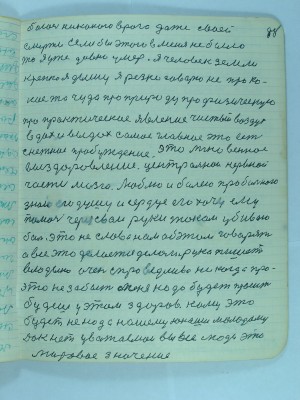 боюсь никакого врага даже своей
смерти Если бы этого в меня не было
то я уже давно умер. я человек земли
крепко я дышу я резко говорю не про ко-
кие то чуда про природу про физическую
про практическое явление чистый воздух
вдох и выдох самое главное это ест
снежные пробуждение. это мгновенное
выздоровление. центральной нервной
части мозга. Люблю и болею про больного
знаю его душу и сердце его хочу ему
через свои руки током убиваю
бол. это не слова нам об этом говорят
а все это делается делом рука пишет
владыко очен справедливо ни когда про-
это не забыт меня надо будет просит
будеш у этом здоров. кому это
будет не надо нашему юноши молодому
Дак нет уважаемой вы все люди это
мировое значение